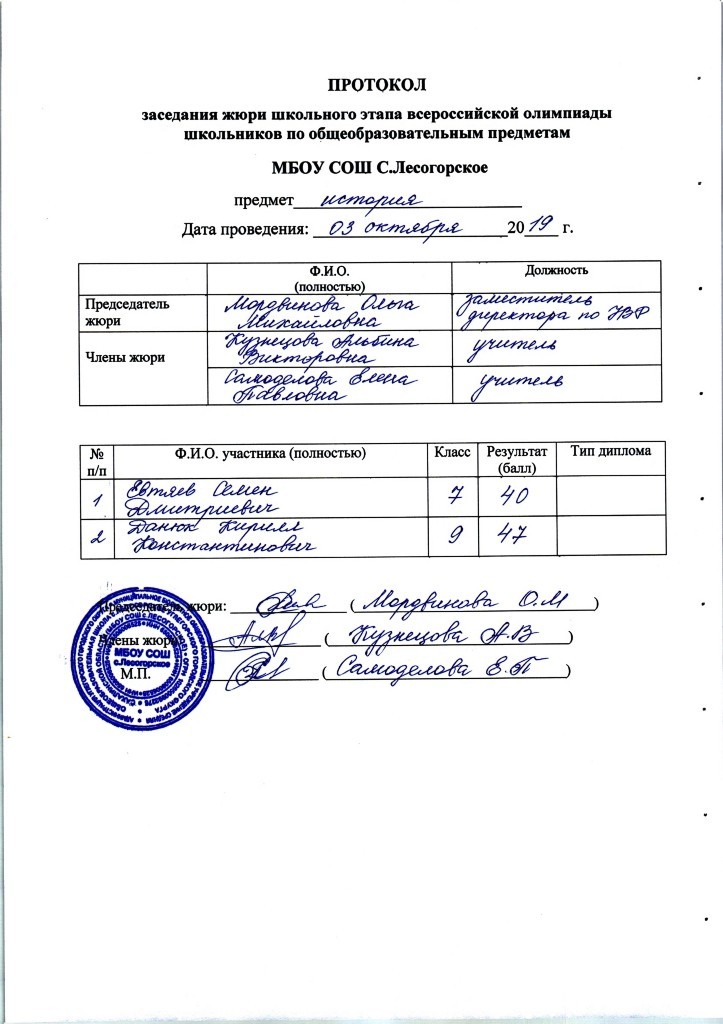 ПРОТОКОЛ
заседания жюри школьного этапа всероссийской олимпиады
школьников по общеобразовательным предметам
МБОУ СОШ С.Лесогорское
предмет история
Дата проведения: 03 октября 2019 г.
Ф.И.О. Должность
(полностью)
Председатель жюри Мордвинова Ольга Михайловна заместитель директора по УВР
Члены жюри Кузнецова Альбина Викторовна учитель
Самоделова Елена Павловна учитель
№ п/п Ф.И.О. участника (полностью) Класс Результат (балл) Тип диплома
1 Евтяев Семен Дмитриевич 7 40
2 Данюк Кирилл Константинович 9 47
Председатель жюри: ( Мордвинова О.М )
Члены жюри: ( Кузнецова А.В )
М.П. ( Самоделова Е.П )
МБОУ СОШ
с.Лесогорское